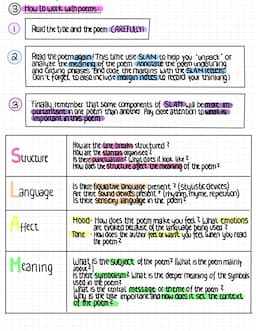 ③ How to work with poems
1 Read the title and the poem CAREFULLY
2 Read the poem again! This time use SLAM to help you "unpack" or
analyze the meaning of the poem. Annotate the poem underlining
and circling phrases and code the margins with the SLAM letters!
Don't forget to also include margin notes to record your thinking!
3 Finally, remember that some components of SLAM will be more im-
portant in one poem than another. Pay close attention to what is
important in this poem
Structure
How are the line breaks structured?
How are the stanzas organised?
Is there punctuation? What does it look like?
How does the structure affect the meaning of the poem?
Language
Is there figurative language present? (stylistic devices)
Are there sound devices present? (rhythm, rhyme, repetition)
Is there sensory language in the poem?
Affect
Mood - How does the poem make you feel? What emotions
are evoked because of the language being used?
Tone - How does the author want you feel when you read
the poem?
Meaning
What is the subject of the poem? (What is the poem making
about?)
Is there symbolism? What is the deeper meaning of the symbols
used in the poem?
What is the central message or theme of the poem?
Why is the title important and how does it set the context
of the poem?